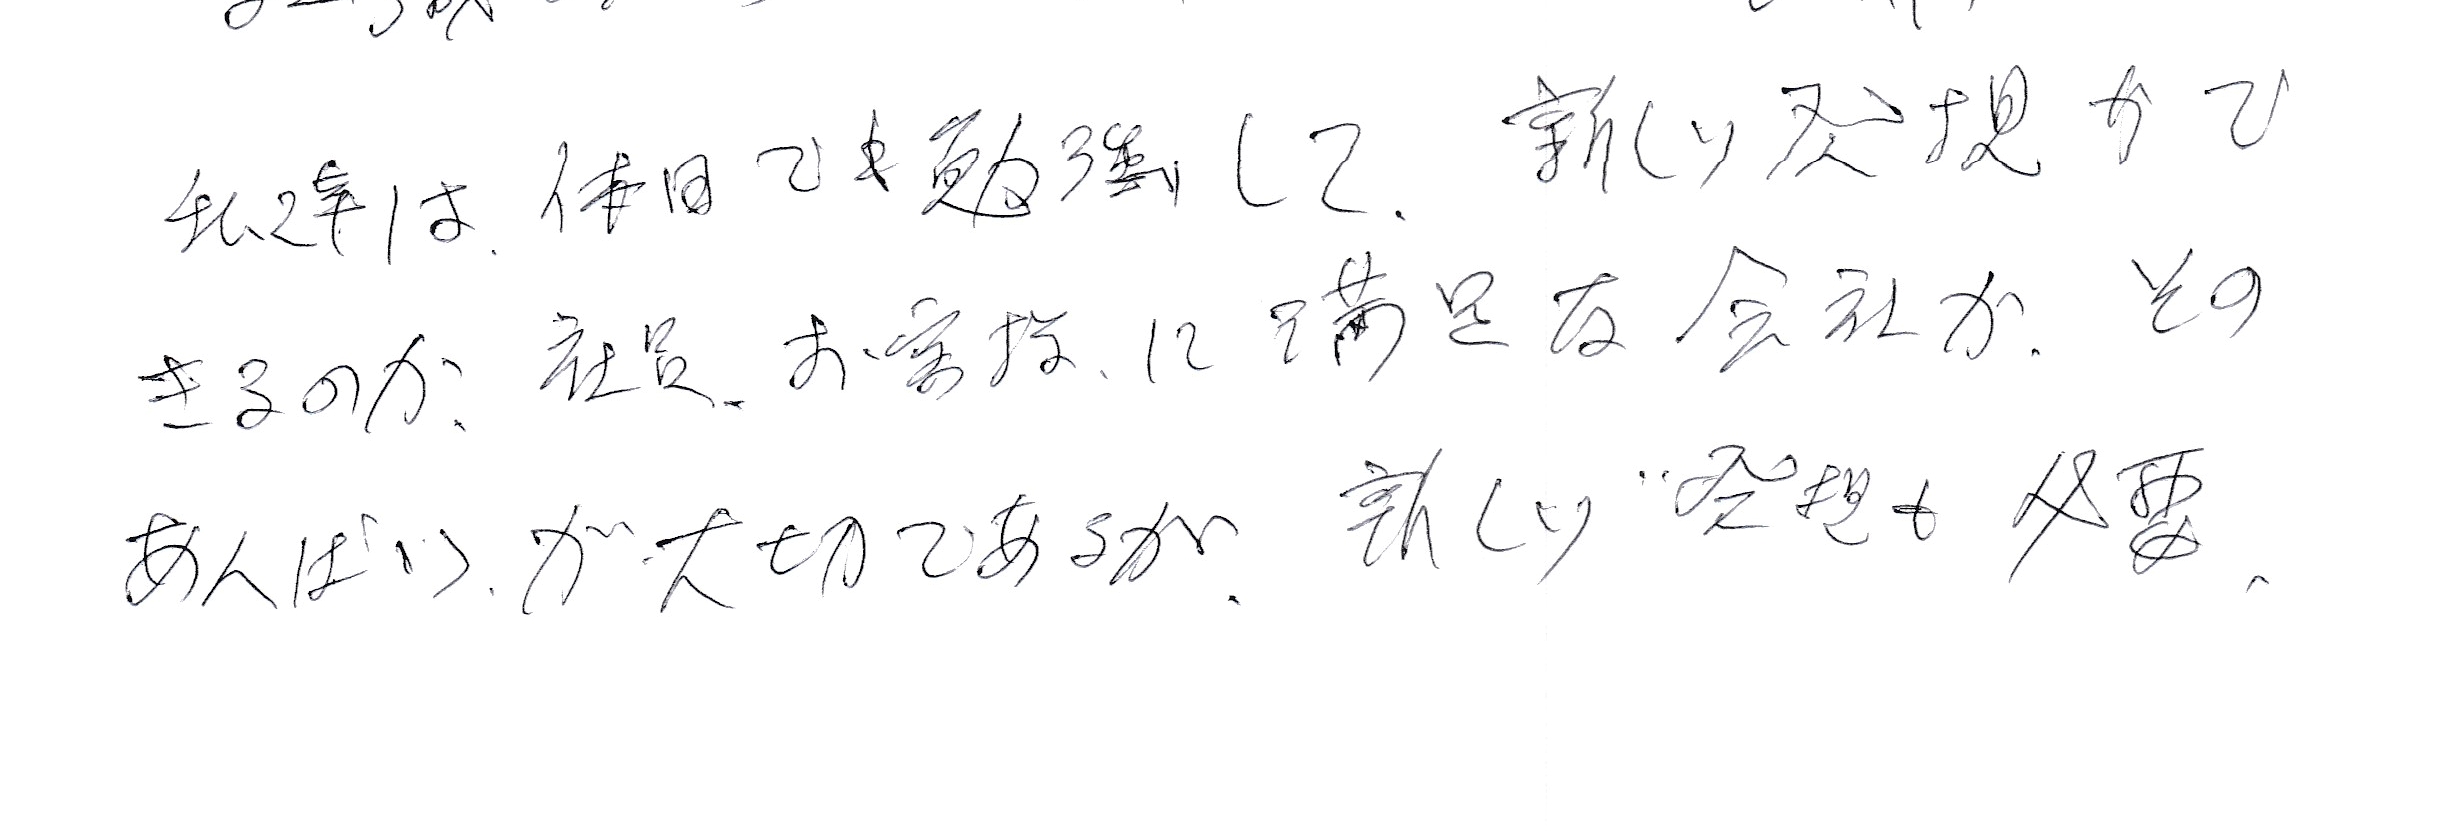 私達は、休日でも勉強して、新しい発想がで
きるのか、社員、お客様、に満足な会社か、その
あんばい、が大切であるが、新しい発想も必要、